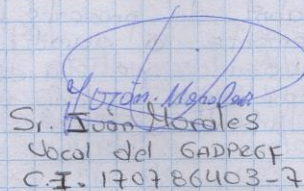 Iván Morales
Sr. Iván Morales
Vocal del GADPRGF
C.I. 170786403-7